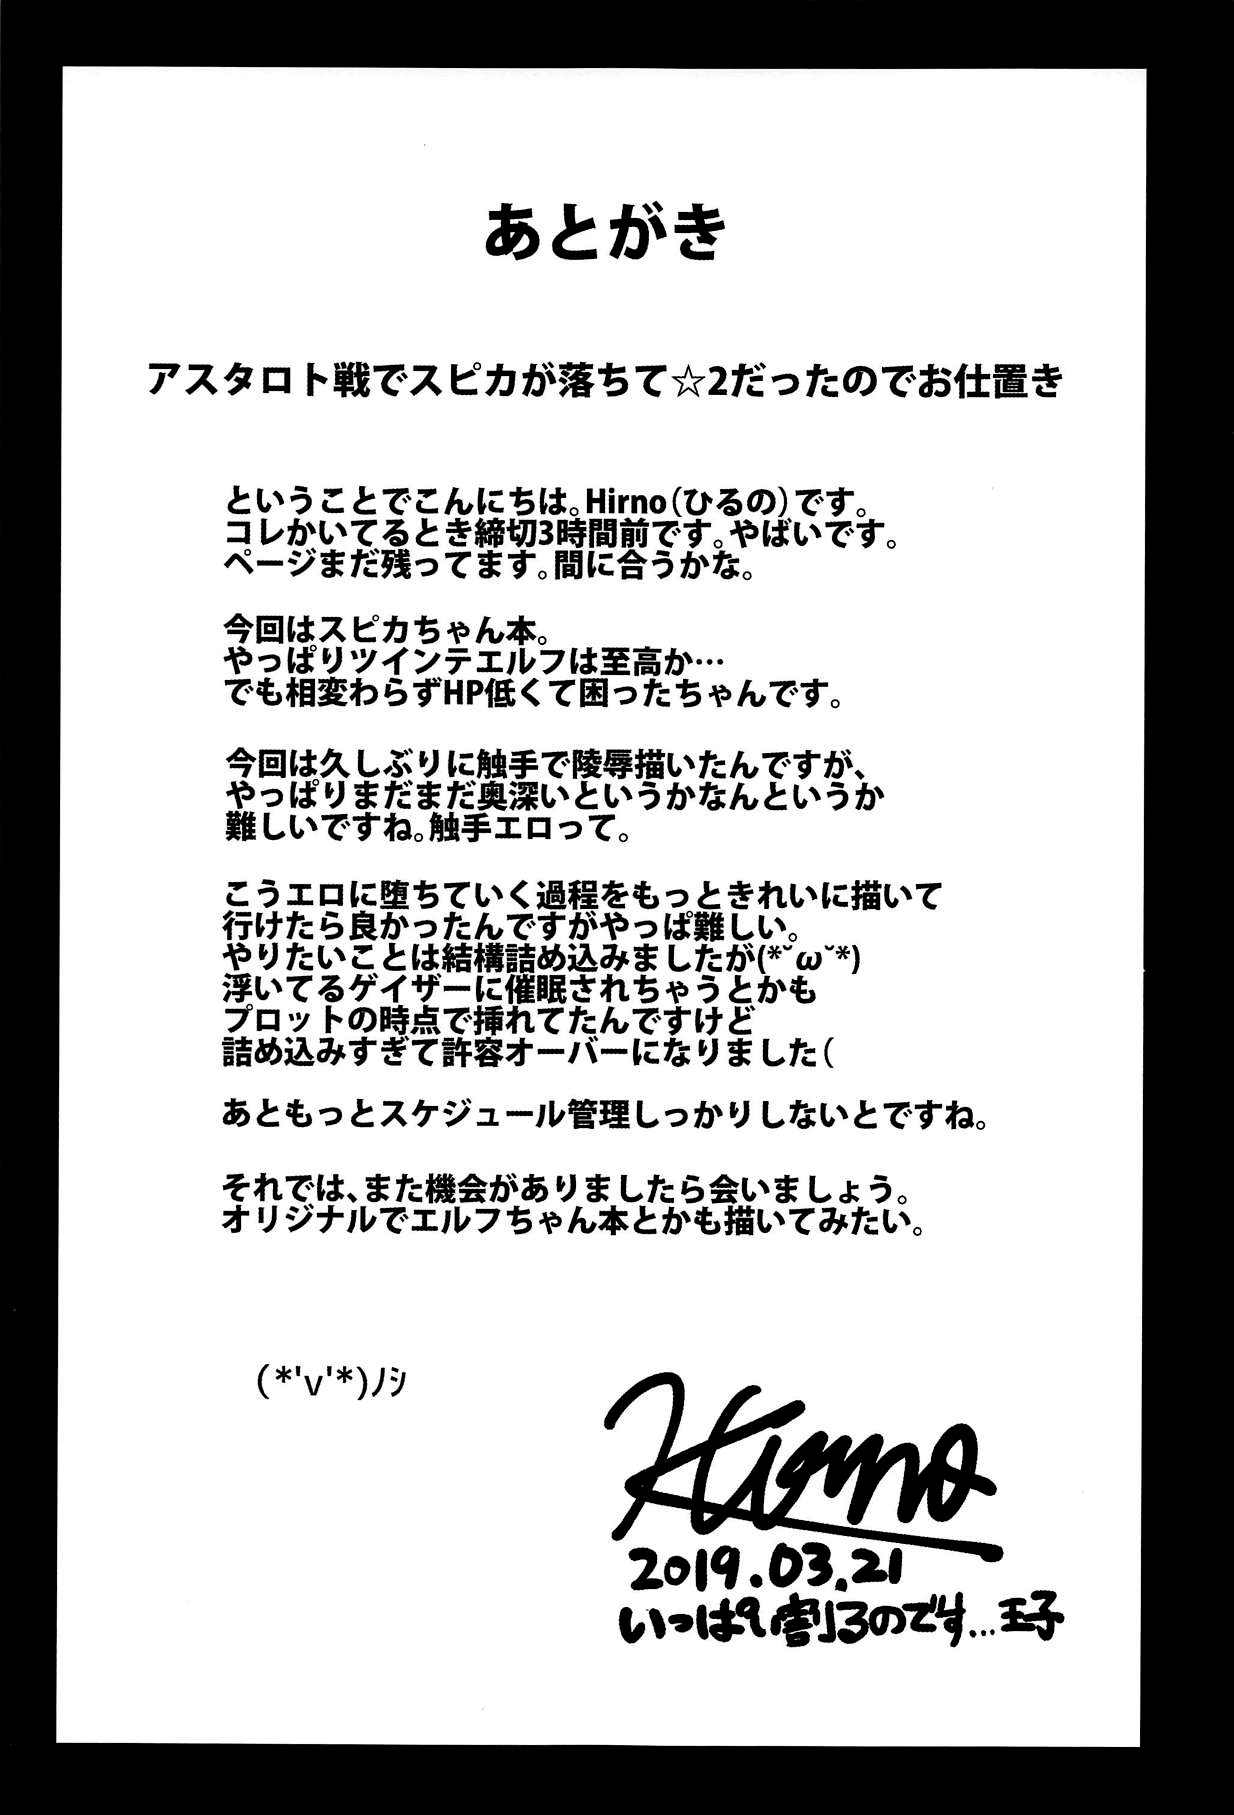 あとがき
アスタロト戦でスピカが落ちて☆2だったのでお仕置き
ということでこんにちは。Hirno（ひるの）です。
コレかいてるとき締切3時間前です。やばいです。
ページまだ残ってます。間に合うかな。
今回はスピカちゃん本。
やっぱりツインテエルフは至高か…
でも相変わらずHP低くて困ったちゃんです。
今回は久しぶりに触手で陵辱描いたんですが、
やっぱりまだまだ奥深いというかなんというか
難しいですね。触手エロって。
こうエロに堕ちていく過程をもっときれいに描いて
行けたら良かったんですがやっぱ難しい。
やりたいことは結構詰め込みましたが(*˘ω˘*)
浮いてるゲイザーに催眠されちゃうとかも
プロットの時点で挿れてたんですけど
詰め込みすぎて許容オーバーになりました（
あともっとスケジュール管理しっかりしないとですね。
それでは、また機会がありましたら会いましょう。
オリジナルでエルフちゃん本とかも描いてみたい。
(*'v'*)ﾉｼ
Hirno
2019.03.21
いっぱい割るのです…王子